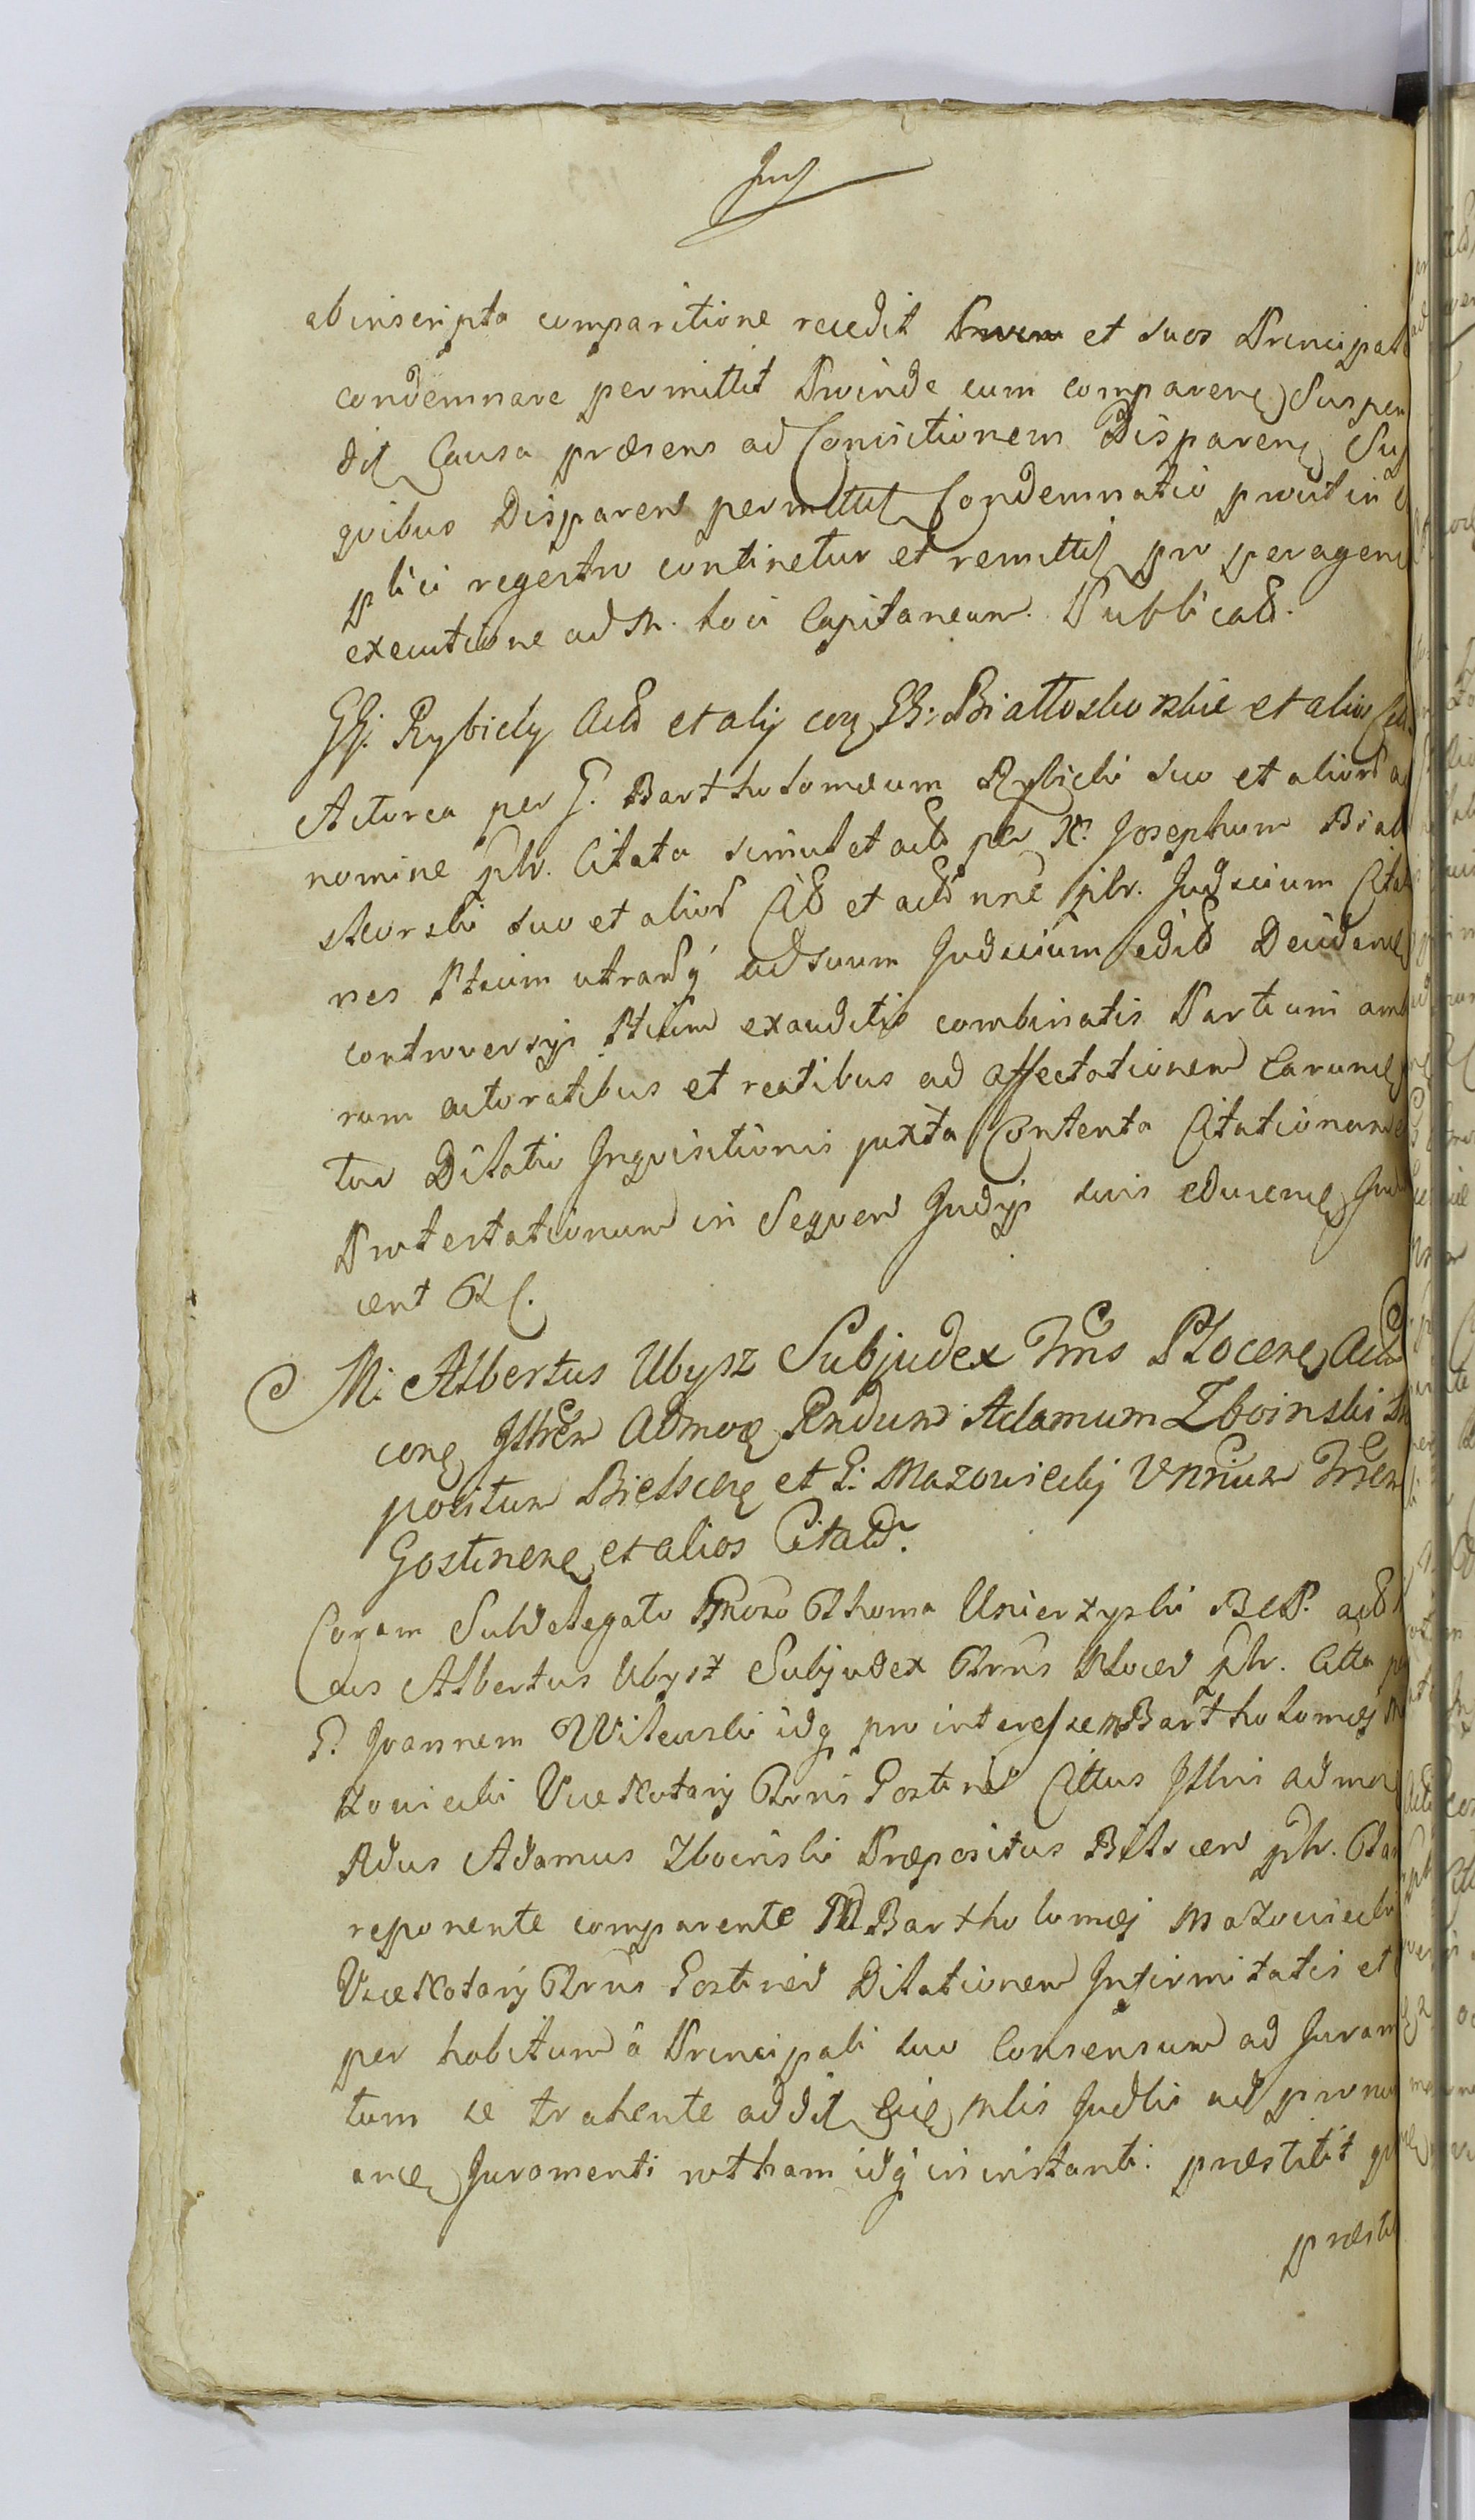 ab inscripta comparitione recedit et suos Principal
condemnare permittit Proinde cum comparen Suspen
dit Causa præsens ad Conisitionem Disparen
quibus Disparen permittit Condemnatio prout in
plici regestro continetur et remittit pro peragen
executione ad M. loci Capitaneum. Publicad.
GG. Rybicky Actd et alij con GG: Białłoskorskie et alios
Actorea per G. Bartholomæum Rybicki suo et aliord
nomine plr. Citata simul et actd per N. Josephum Biał
skorski suo et aliord Citd et actd nne plr. Judicium
nes Ptium utrarq ad suum Judicium edid Deciden
controversys Ptium exauditis combinatis Partium amb
rum actoratibus et reatibus ad affectationem Earum
tur Dilatio Inquisitionis juxta Contenta Citationum
Protestationum in Sequen Judijs suis educen
cent
M. Albertus Ubysz Subjudex Trris Plocen Actd
con Illrem Admo Rndum Adamum Zboinski
positum Bielscen et G. Mazowiecky V Nrium Trren
Gostinen et alios Citatd.
Coram Subdelegato Gnoso Thoma Unierzyski actd
cus Albertus Ubysz Subjudex Trris Plocen plr. Citta
G. Joannem Witewski idq pro interessen Bartholomæj
zowiecki ViceNotarij Trris Gostinen Cittus Illris admo
Rdus Adamus Zboinski Præpositus Bilscen plr.
reponente comparente Bartholomæj Mazowiecki
ViceNotarij Trris Gostinen Dilationem Infirmitatis et
per habitum â Principali suo Consensum ad Juram
tum se trahente addit mlis Judlis ad pronu
anc Juramenti rotham idq in instanti præstitit
præsti